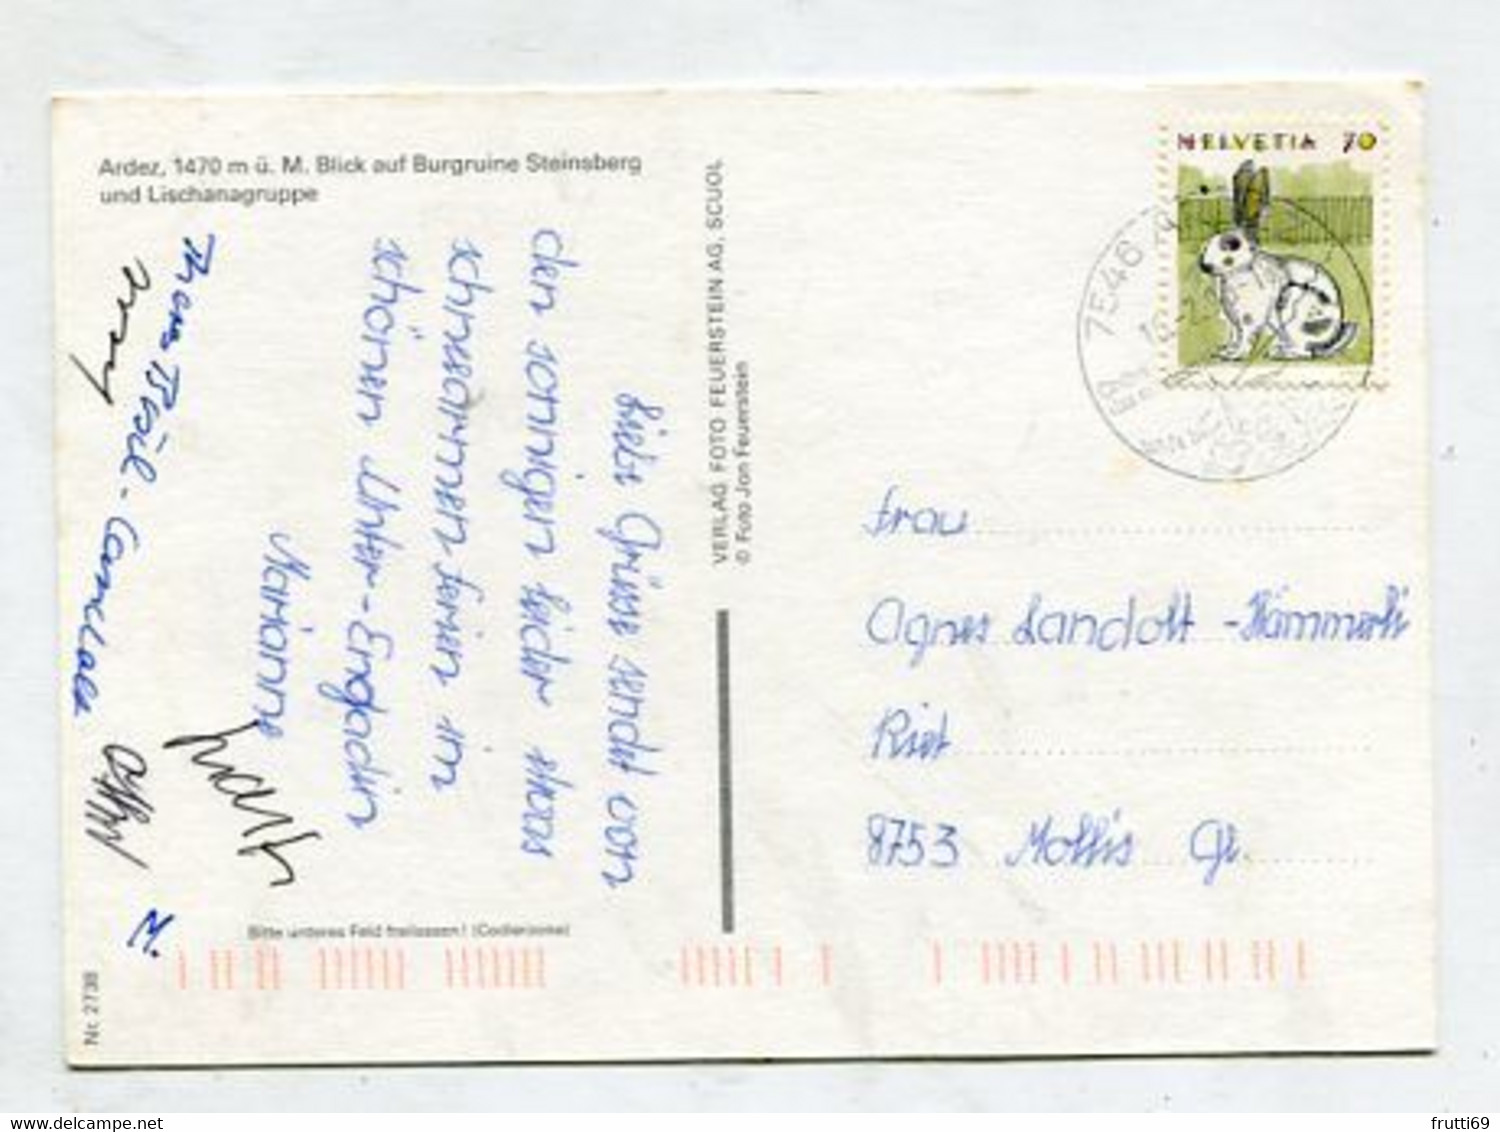 Ardez, 1470 m ü. M. Blick auf Burgruine Steinsberg
und Lischanagruppe
Liebe Grüsse sendet von
den sonnigen leider etwas
schneearmen Ferien im
schönen Unter-Engadin
Marianne
VERLAG FOTO FEUERSTEIN AG, SCUOL
© Foto Jon Feuerstein
HELVETIA 70
7546
Frau
Agnes Landolt-Hämmerli
Riet
8753 Mollis Gl.
Bitte unteres Feld freilassen! (Codierzone)
Nr. 2738
frutti69
www.delcampe.net